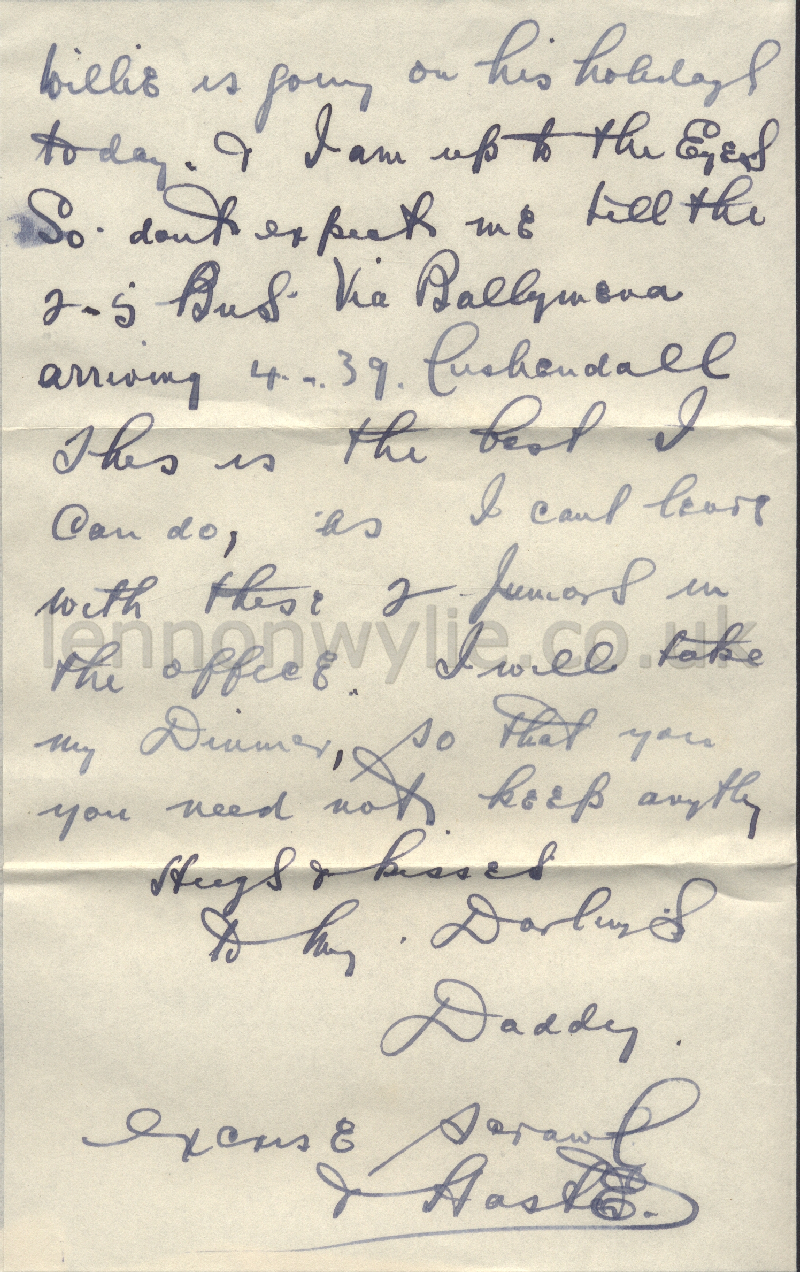 Willie is going on his holidays
today. & I am up to the Eyes
So dont expect me till the
2-5 Bus Via Ballymena
arriving 4-.39. Cushendall
This is the best I
Can do, as I cant leave
with these 2 Juniors in
the office. I will take
my Dinner, so that you
you need not keep anythg
Hugs & kisses
to my Darlings
Daddy.
excuse scrawl
& Haste.
lennonwylie.co.uk